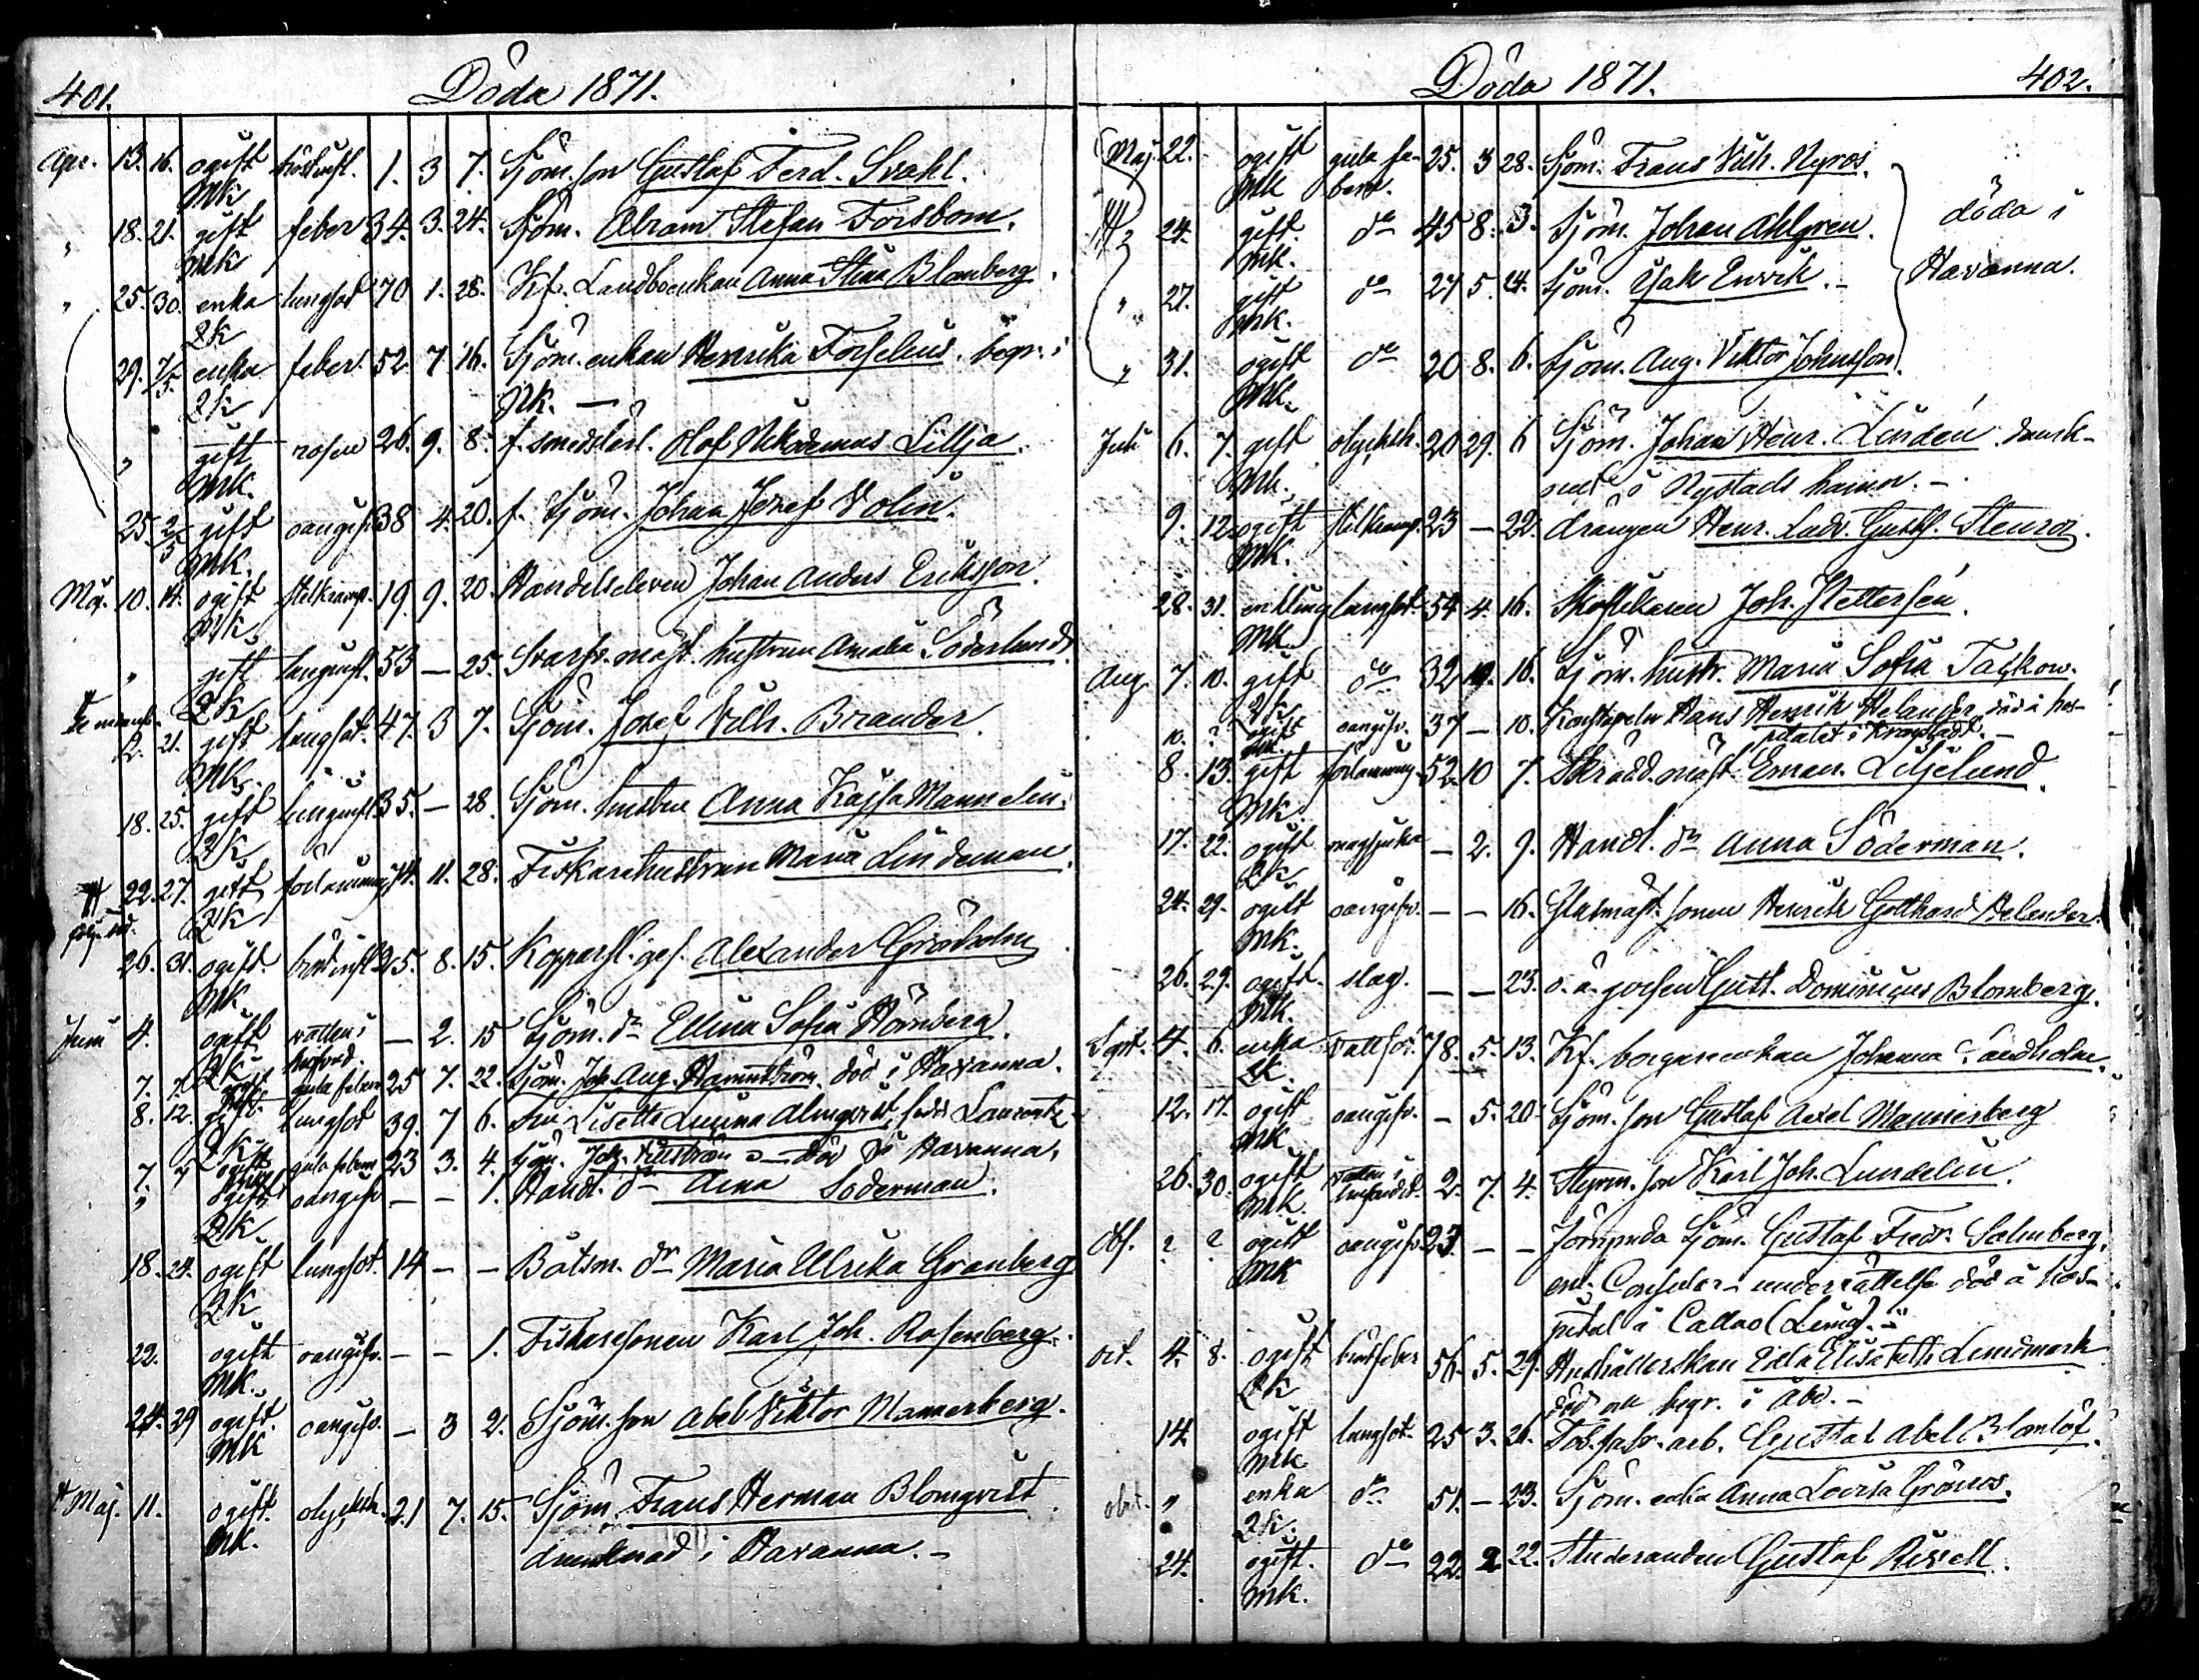 401.
Döda 1871.
Apr. 13. 16. ogift 1. 3 7. Sjöm. son Gustaf Ferd. Svahl.
Mk
" 18. 21. gift feber 34. 3. 24. Sjöm. Abram Stefan Forsbom.
Mk
" 25. 30. enka lungsot 70 1. 28. Kf. Landboenkan Anna Stina Blomberg.
Qk
29. 7/5. enka feber. 52. 7 16. Sjöm. enkan Henrika Forselius. begr. i
Qk
Nk. —
" gift rosen 26. 9. 8. f. smedslärl. Olof Nikodemus Lillja.
Mk.
25. 2/5 gift oangifv. 38 4. 20. f. Sjöm. Johan Josef Volin.
Mk.
Maj. 10. 14. ogift stelkramp. 19. 9. 20. Handelseleven Johan Anders Eriksson.
Mk.
" gift lunginfl. 53 — 25. Svarfv. mäst. hustrun Amalia Söderlund.
Qk
12. 21. gift lungsot. 47. 3 7. Sjöm. Josef Vilh. Brander.
Mk.
18. 25. gift lunginfl. 35. — 28. Sjöm. hustru Anna Kajsa Mannelin.
Qk
22. 27. gift förlamning 74. 11. 28. Fiskarehustrun Maria Lindeman.
Qk
26. 31. ogift. 25. 8. 15. Kopparsl. ges. Alexander Grönholm.
Mk
Juni 4. ogift vatten i hufvud. — 2. 15 Sjöm. dr Ellina Sofia Hömberg.
Qk
7. 7. gula febern 25 7. 22. Sjöm. Joh. Aug. Hammström. död i Havanna.
8. 12. gift lungsot 39. 7 6. Lisette Lovina Almqvist, född Laurentz
Qk
7. 7 ogift gula febern 23 3. 4. Sjöm. Joh. död i Havanna.
" ogift oangifv. — — 1. Handl. dr Aina Söderman.
Qk.
18. 24. ogift lungsot. 14 — — Båtsm. dr Maria Ulrika Granberg
Qk
22. ogift oangifv. — — 1. Fiskaresonen Karl Joh. Rosenberg.
Mk.
24. 29 ogift oangifv. — 3 2. Sjöm. son Abel Viktor Mannerberg.
Mk
Maj. 11. ogift. olyckth. 21 7. 15. Sjöm. Frans Herman Blomqvist
Mk.
drunknad i Havanna. –
Döda 1871.
402.
Maj. 22. ogift gula fe- 25. 3 28. Sjöm. Frans Vilh. Nyros.
Mk bern.
24. gift. do 45 8. 3. Sjöm. Johan Ahlgren.
döda i
Mk.
" 27. gift do 27 5. 14. Sjöm. Isak Envik. –
Havanna.
Mk.
" 31. ogift do 20 8. 6. Sjöm. Aug. Viktor Johnsson.
Mk.
Juli 6. 7. gift olyckth. 20 29. 6 Sjöm. Johan Henr. Lindén. drunk-
Mk.
nad i Nystads hamn. –
9. 12. ogift stelkramp. 23 — 22. drängen Henr. Ludv. Gustf. Stenros.
Mk.
28. 31. enkling lungsot. 54 4. 16. Skoflikaren Joh. Pettersén.
Mk
Aug. 7. 10. gift do 32 10. 16. Sjöm. hustr. Maria Sofia Tackov.
Qk
10. ? ogift oangifv. 37 — 10. Konstapeln Hans Henrik Helander, död å hos-
Mk.
pitalet i Kronstadt. –
8. 13. gift förlamning. 52. 10 7. Skrädd. mäst. Eman. Liljelund.
Mk.
17. 22. ogift magsjuka — 2. 9. Handl. dr Anna Söderman.
Qk
24. 29. ogift oangifv. — — 16. Glasmäst. sonen Henrik Gotthard Helander.
Mk.
26. 29. ogift. slag. — — 23. o. ä. gossen Gust. Dominicus Blomberg.
Mk.
Sept. 4. 6. enka vattsot 78. 5. 13. Kf. borgareenkan Johanna Sandholm.
Qk.
12. 17. ogift oangifv. — 5. 20. Sjöm. son Gustaf Axel Mannerberg
Mk
26. 30. ogift vatten i hufvudet. 2. 7. 4. Styrm. son Karl Joh. Lundelin.
Mk.
Obs. ? ? ogift oangifv. 23. — — Jömpnda Sjöm. Gustaf Fredr. Salmberg,
Mk
enl. Consuler-underrättelse död å hos-
pital i Callao (Lima). –
Oct. 4. 8. ogift 56. 5. 29. Hushållerskan Edla Elisabeth Lindmark
Qk
död och begr. i Åbo. –
14. ogift lungsot. 25 3. 26. Tob. fabr. arb. Gustaf Abel Blomlöf.
Mk
" enka do 51. — 23. Sjöm. enka Anna Lovisa Grönros.
Qk.
24. ogift. do 22. 2 22. Studeranden Gustaf Rivell.
Mk.